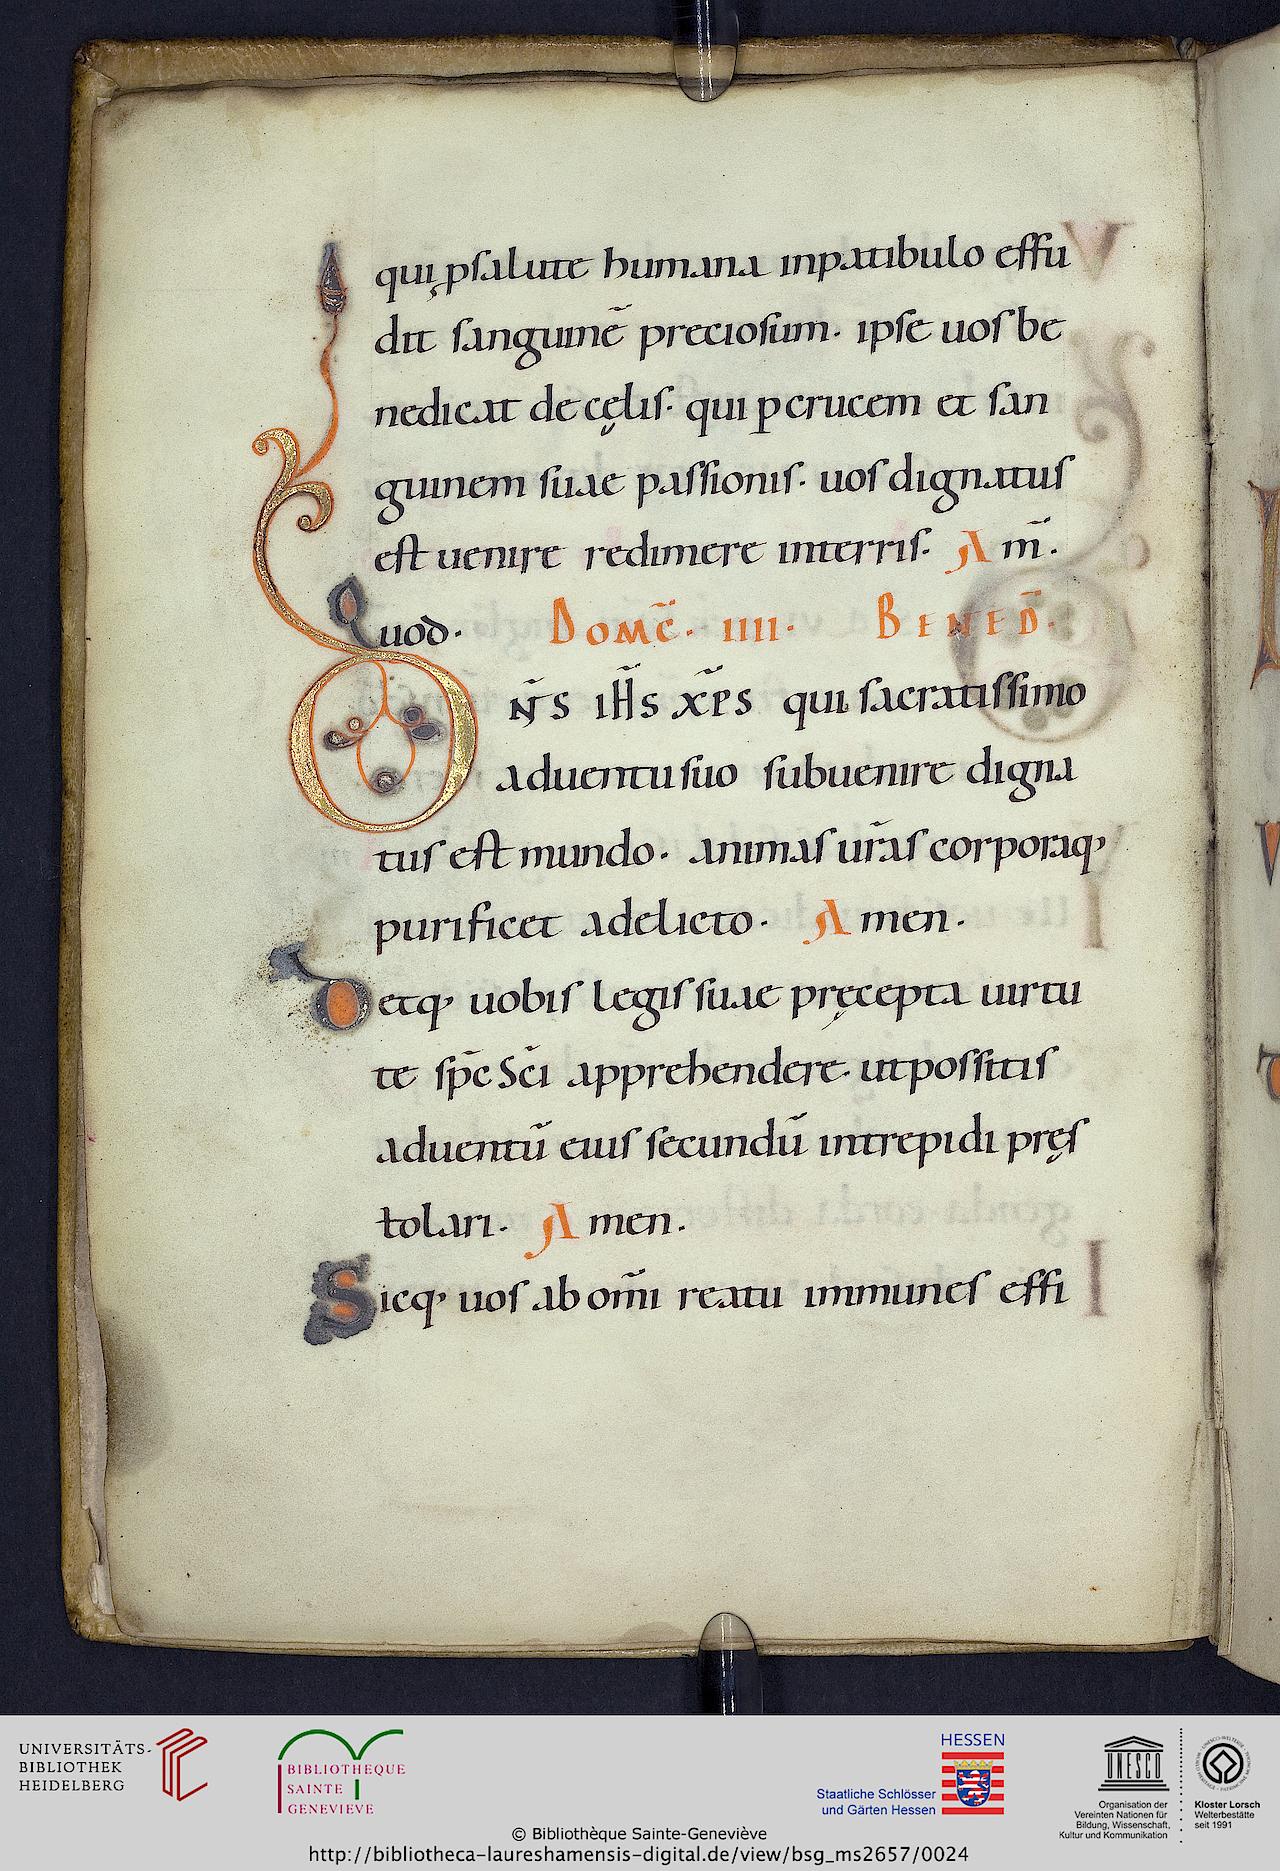 qui ꝓ salute humana inpatibulo effu
dit sanguinē preciosum. ipse uos be
nedicat de cęlis. qui ꝑ crucem et san
guinem suae passionis. uos dignatus
est uenire redimere interris. Am̄.
Quod. Domc̄. IIII. Bened̄.
Dn̄s ih̄s xp̄s qui sacratissimo
aduentu suo subuenire digna
tus est mundo. animas ur̄as corporaq;
purificet adelicto. Amen.
Detq; uobis legis suae pręcepta uirtu
te sp̄c sc̄i apprehendere. ut possitis
aduentū eius secundū intrepidi pręs
tolari. Amen.
Sicq; uos ab om̄i reatu immunes effi
UNIVERSITÄTS-
BIBLIOTHEK
HEIDELBERG
BIBLIOTHEQUE
SAINTE
GENEVIEVE
HESSEN
Staatliche Schlösser
und Gärten Hessen
UNESCO
Organisation der
Vereinten Nationen für
Bildung, Wissenschaft,
Kultur und Kommunikation
Kloster Lorsch
Welterbestätte
seit 1991
© Bibliothèque Sainte-Geneviève
http://bibliotheca-laureshamensis-digital.de/view/bsg_ms2657/0024